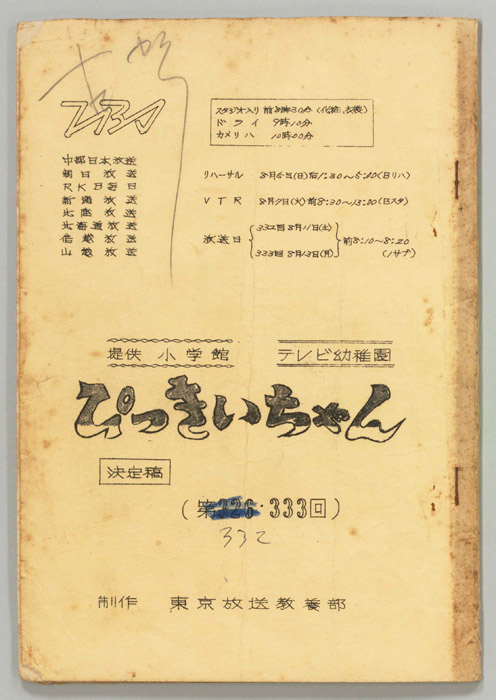 TBS
スタジオ入り 前8時30分 (化粧、衣裳)
ドライ 9時10分
カメリハ 10時00分
中部日本放送
朝日放送
RKB毎日
新潟放送
北陸放送
北海道放送
信越放送
山陰放送
リハーサル 8月5日(日)后1:30〜5:00(Bリハ)
VTR 8月7日(火)前8:30〜13:00(Bスタ)
放送日 332回 8月11日(土)
333回 8月13日(月)
前8:10〜8:20
(ノサブ)
提供 小学館 テレビ幼稚園
ぴっきいちゃん
決定稿
(第326・333回)
332
制作 東京放送教養部